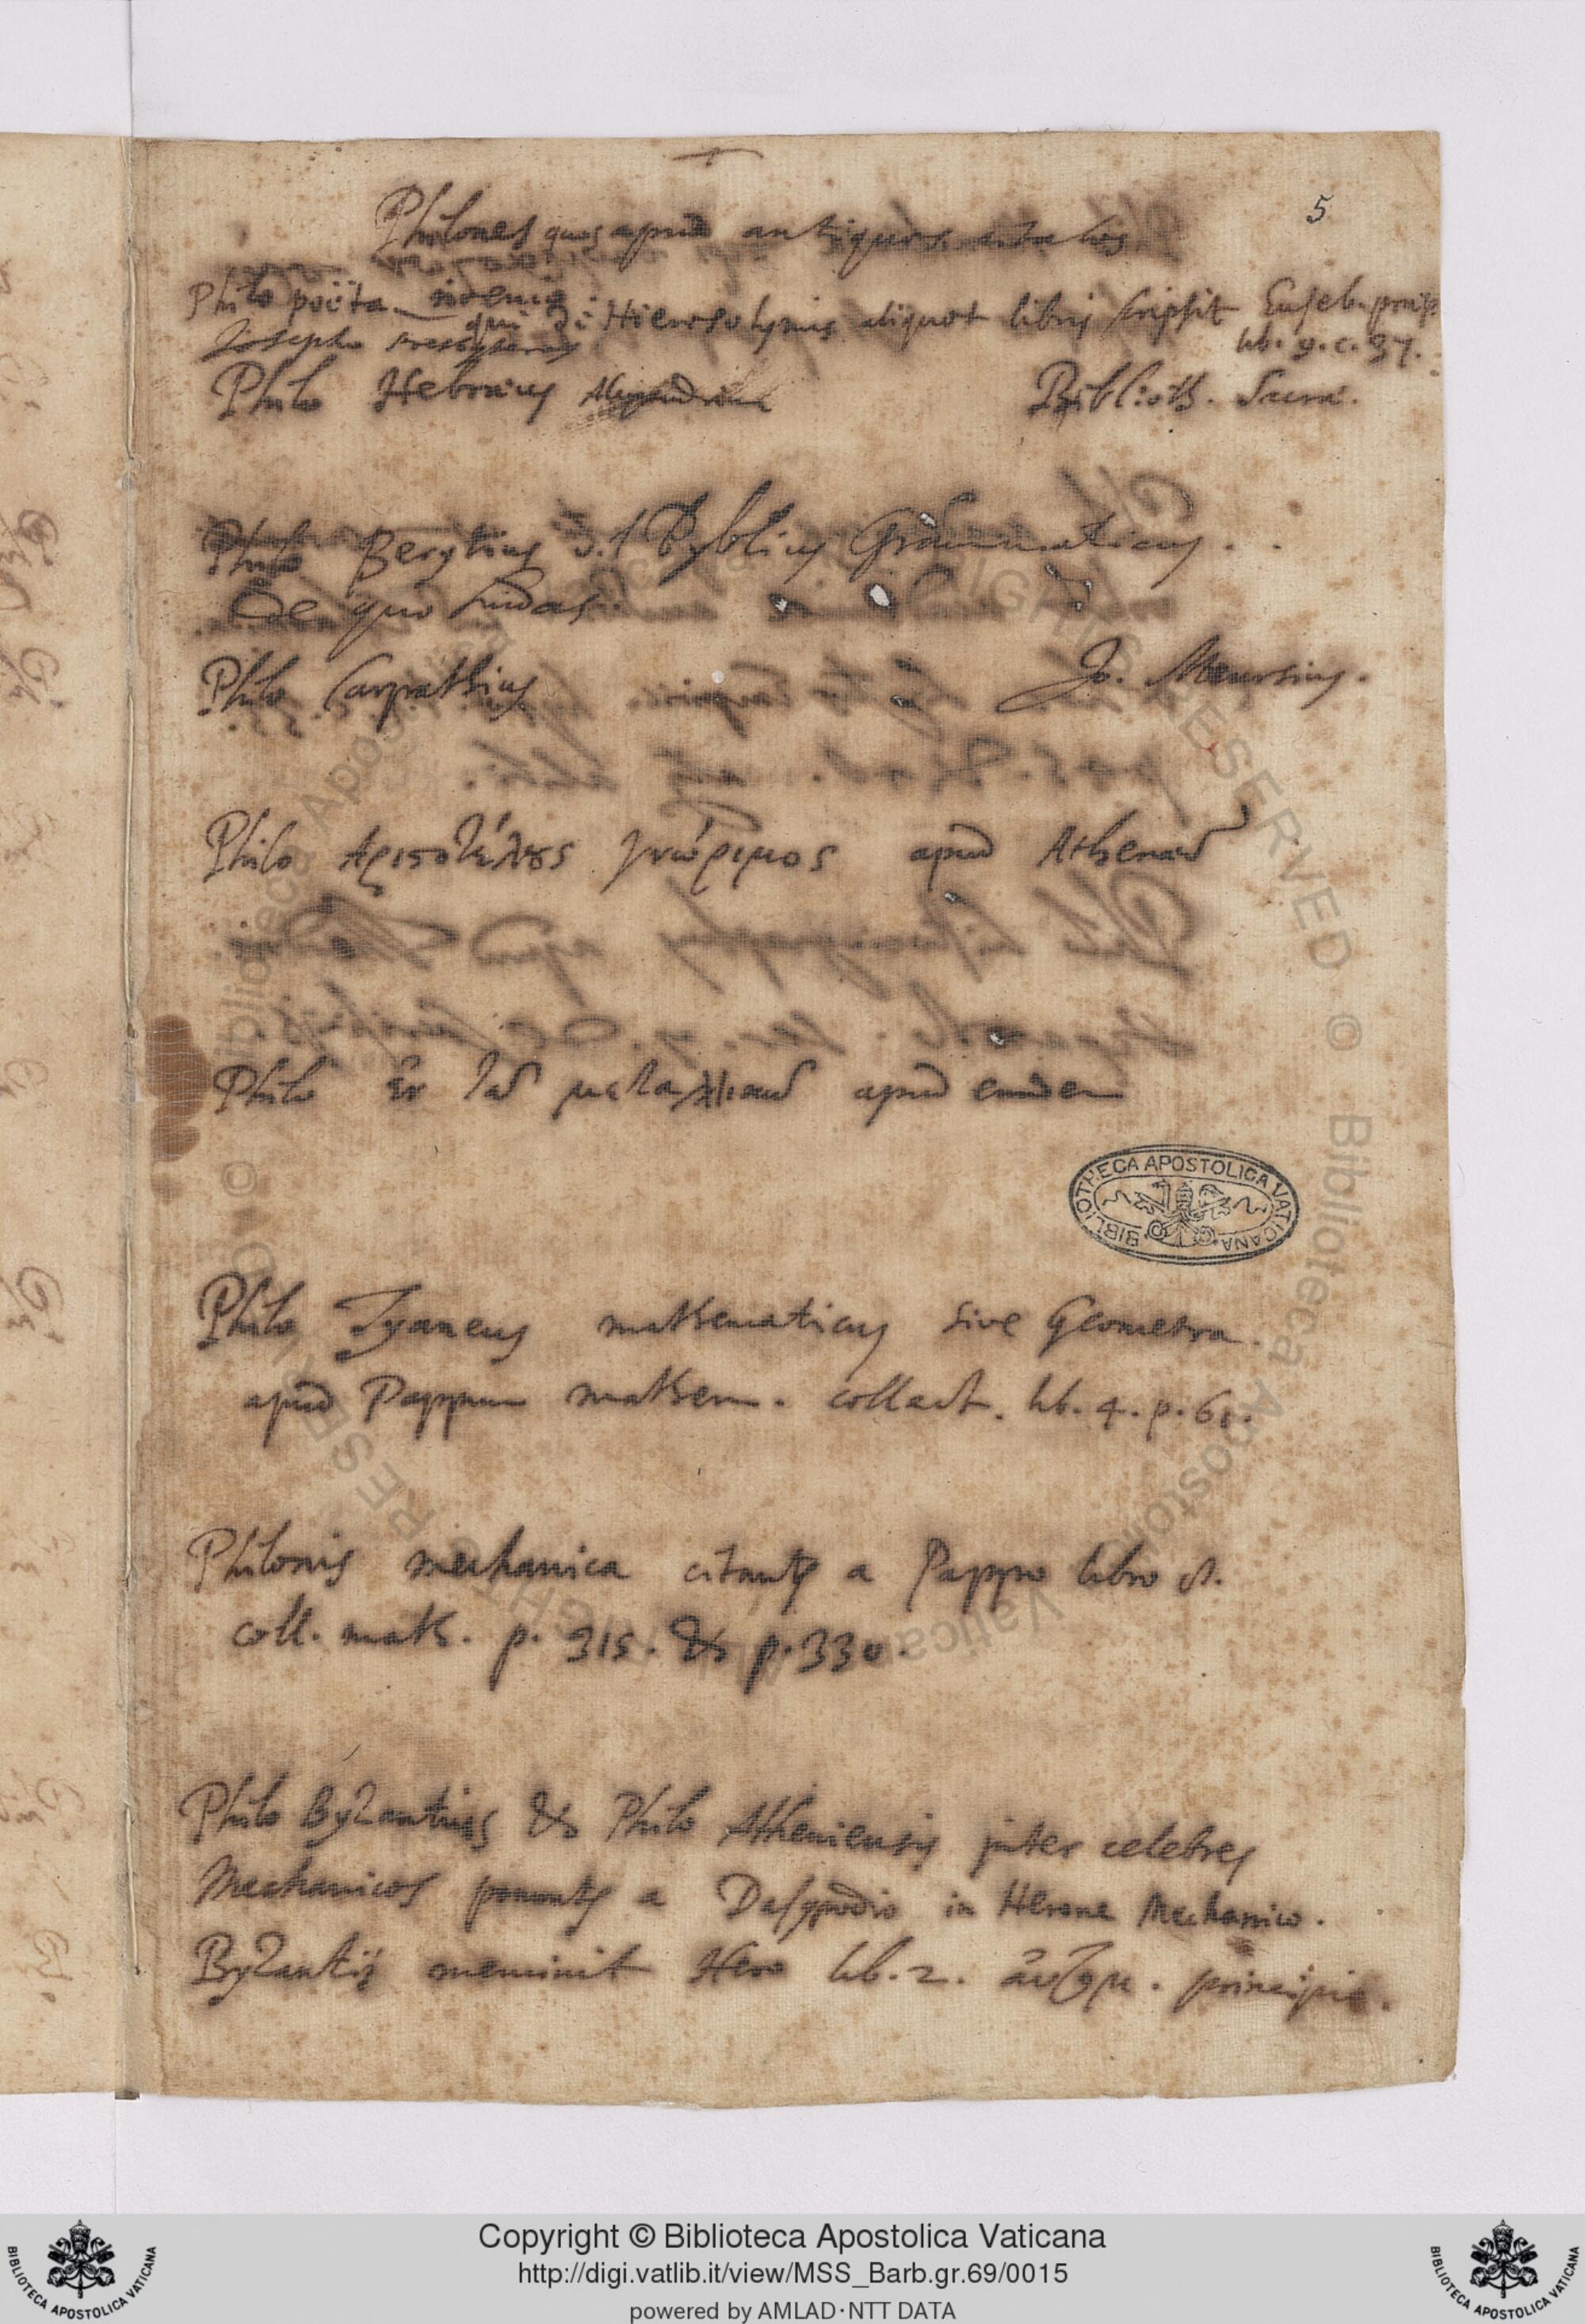 5
Philones quos apud antiquos citatos
Philo poëta
qui de Hierosolymis aliquot libris scripsit Euseb. præp.
Josepho lib. 9. c. 37.
Philo Hebræus Biblioth. Sacra.
Philo Berytius Byblius Grammaticus.
De quo Suidas.
Philo Carpathius Jo. Meursius.
Philo Αριστοτέλους γνώριμος apud Athenæum
Philo apud eundem
BIBLIOTHECA APOSTOLICA VATICANA
Philo Tyaneus mathematicus sive Geometra.
apud Pappum mathem. collect. lib. 4. p. 61.
Philonis mechanica citantur a Pappo libro 8.
coll. math. p. 315. & p. 330.
Philo Byzantius & Philo Atheniensis inter celebres
Mechanicos ponuntur a Dasypodio in Herone Mechanico.
Byzantij meminit Hero lib. 2. principio.
Copyright © Biblioteca Apostolica Vaticana
http://digi.vatlib.it/view/MSS_Barb.gr.69/0015
powered by AMLAD·NTT DATA
BIBLIOTECA APOSTOLICA VATICANA
BIBLIOTECA APOSTOLICA VATICANA